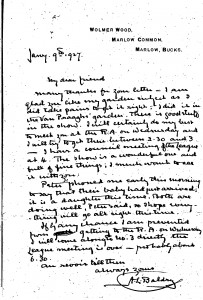 WOLMER WOOD,
MARLOW COMMON,
MARLOW, BUCKS.
Jany. 9th 1927.
My dear friend
many thanks for your letter – I am
glad you like my garden subject as I
did take pains to get it right. I did it in
the Van Pragh's garden. There is good stuff
in the show. I will certainly do my best
to meet you at the R.A. on Wednesday and
I will try to get there between 2.30 and 3
– I have a council meeting of the League
at 4. The show is a wonderful one and
full of fine things, I much want to see
it with you.
Peter phoned me early this morning
to say that their baby had just arrived,
it is a daughter this time. Both are
doing well, Peter said, so I hope every-
thing will go all right this time.
If by any chance I am prevented
from getting to the R.A. on Wednesday
I will come along to No. 3 directly the
League meeting is over – probably about
6.30.
Au revoir till then
always yours